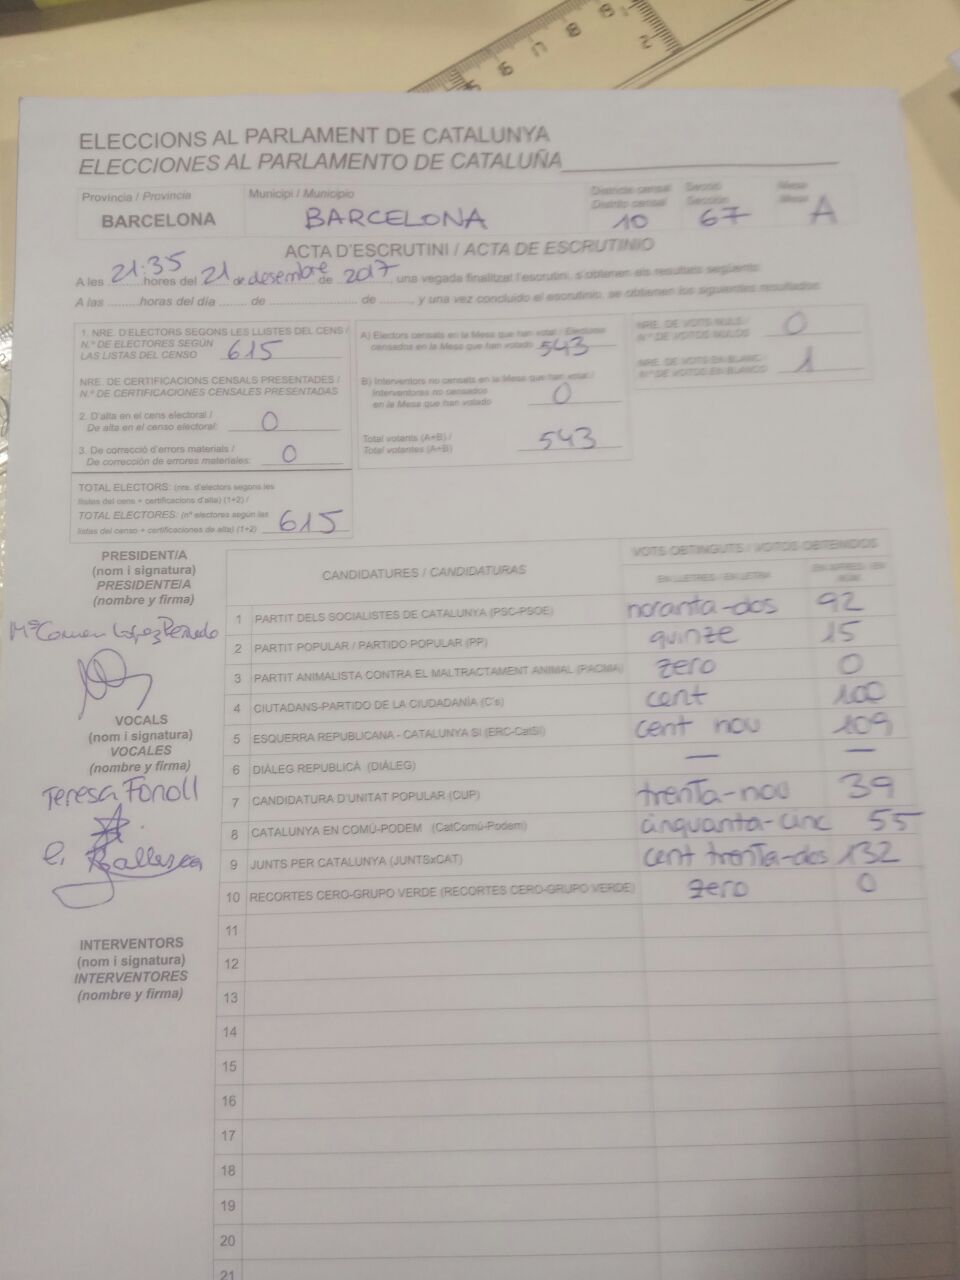 ELECCIONS AL PARLAMENT DE CATALUNYA
ELECCIONES AL PARLAMENTO DE CATALUÑA
Provincia / Provincia
BARCELONA
Municipi / Municipio
BARCELONA
Districte censal
Distrito censal
10
Secció
Sección
67
Mesa
Mesa
A
ACTA D'ESCRUTINI / ACTA DE ESCRUTINIO
A les 21:35 hores del 21 de desembre de 2017, una vegada finalitzat l'escrutini, s'obtenen els resultats següents:
A las ........horas del día ....... de ..................... de ........, y una vez concluido el escrutinio, se obtienen los siguientes resultados:
1. NRE. D'ELECTORS SEGONS LES LLISTES DEL CENS /
N.º DE ELECTORES SEGÚN
LAS LISTAS DEL CENSO 615
NRE. DE CERTIFICACIONS CENSALS PRESENTADES /
N.º DE CERTIFICACIONES CENSALES PRESENTADAS
2. D'alta en el cens electoral /
De alta en el censo electoral: 0
3. De correcció d'errors materials /
De corrección de errores materiales: 0
TOTAL ELECTORS: (nre. d'electors segons les
llistes del cens + certificacions d'alta) (1+2) /
TOTAL ELECTORES: (nº electores según las
listas del censo + certificaciones de alta) (1+2) 615
A) Electors censats en la Mesa que han votat / Electores
censados en la Mesa que han votado 543
B) Interventors no censats en la Mesa que han votat /
Interventores no censados
en la Mesa que han votado 0
Total votants (A+B) /
Total votantes (A+B) 543
NRE. DE VOTS NULS /
N.º DE VOTOS NULOS 0
NRE. DE VOTS EN BLANC /
N.º DE VOTOS EN BLANCO 1
PRESIDENT/A
(nom i signatura)
PRESIDENTE/A
(nombre y firma)
VOCALS
(nom i signatura)
VOCALES
(nombre y firma)
Teresa Fonoll
INTERVENTORS
(nom i signatura)
INTERVENTORES
(nombre y firma)
CANDIDATURES / CANDIDATURAS
VOTS OBTINGUTS / VOTOS OBTENIDOS
EN LLETRES / EN LETRA
1 PARTIT DELS SOCIALISTES DE CATALUNYA (PSC-PSOE) noranta-dos 92
2 PARTIT POPULAR / PARTIDO POPULAR (PP) quinze 15
3 PARTIT ANIMALISTA CONTRA EL MALTRACTAMENT ANIMAL (PACMA) zero 0
4 CIUTADANS-PARTIDO DE LA CIUDADANÍA (C's) cent 100
5 ESQUERRA REPUBLICANA - CATALUNYA SI (ERC-CatSí) cent nou 109
6 DIÀLEG REPUBLICÀ (DIÀLEG) — —
7 CANDIDATURA D'UNITAT POPULAR (CUP) trenta-nou 39
8 CATALUNYA EN COMÚ-PODEM (CatComú-Podem) cinquanta-cinc 55
9 JUNTS PER CATALUNYA (JUNTSxCAT) cent trenta-dos 132
10 RECORTES CERO-GRUPO VERDE (RECORTES CERO-GRUPO VERDE) zero 0
11
12
13
14
15
16
17
18
19
20
21